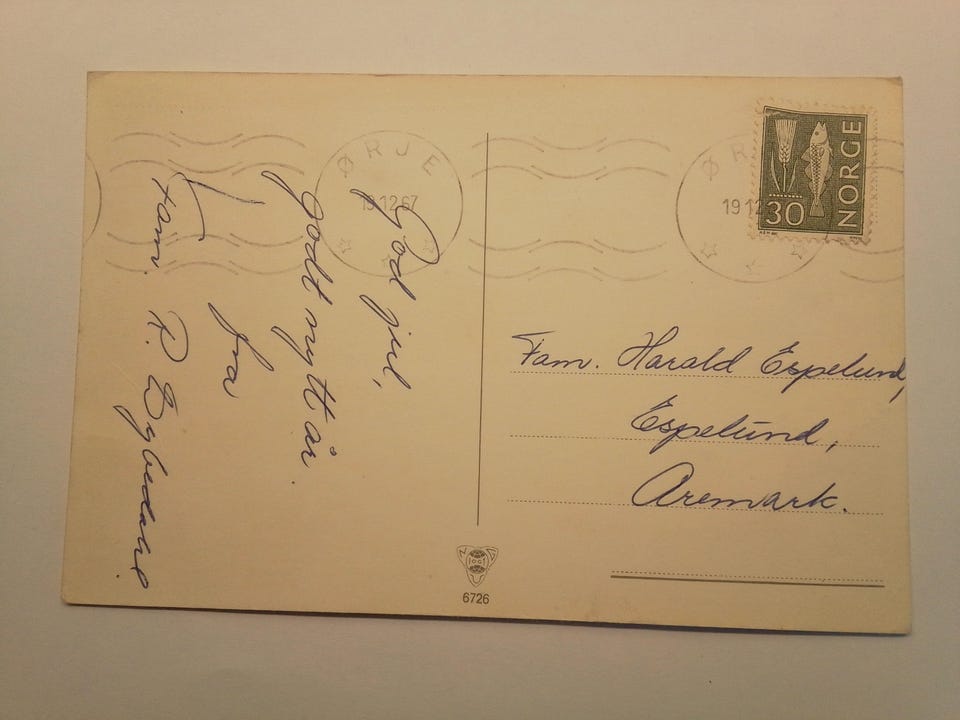 God jul,
Godt nytt år.
fra
Fam. R.
ØRJE
19.12.67
ØR
19 12
NORGE
30
Fam. Harald Espelund,
Espelund,
Aremark.
N G
6726